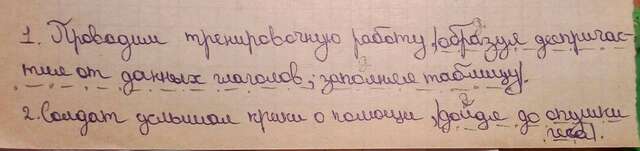 1. Проводим тренировочную работу, образуя деепричас-
тие от данных глаголов, заполняем таблицу.
2. Солдат услышал крики о помощи, дойдя до опушки
леса.